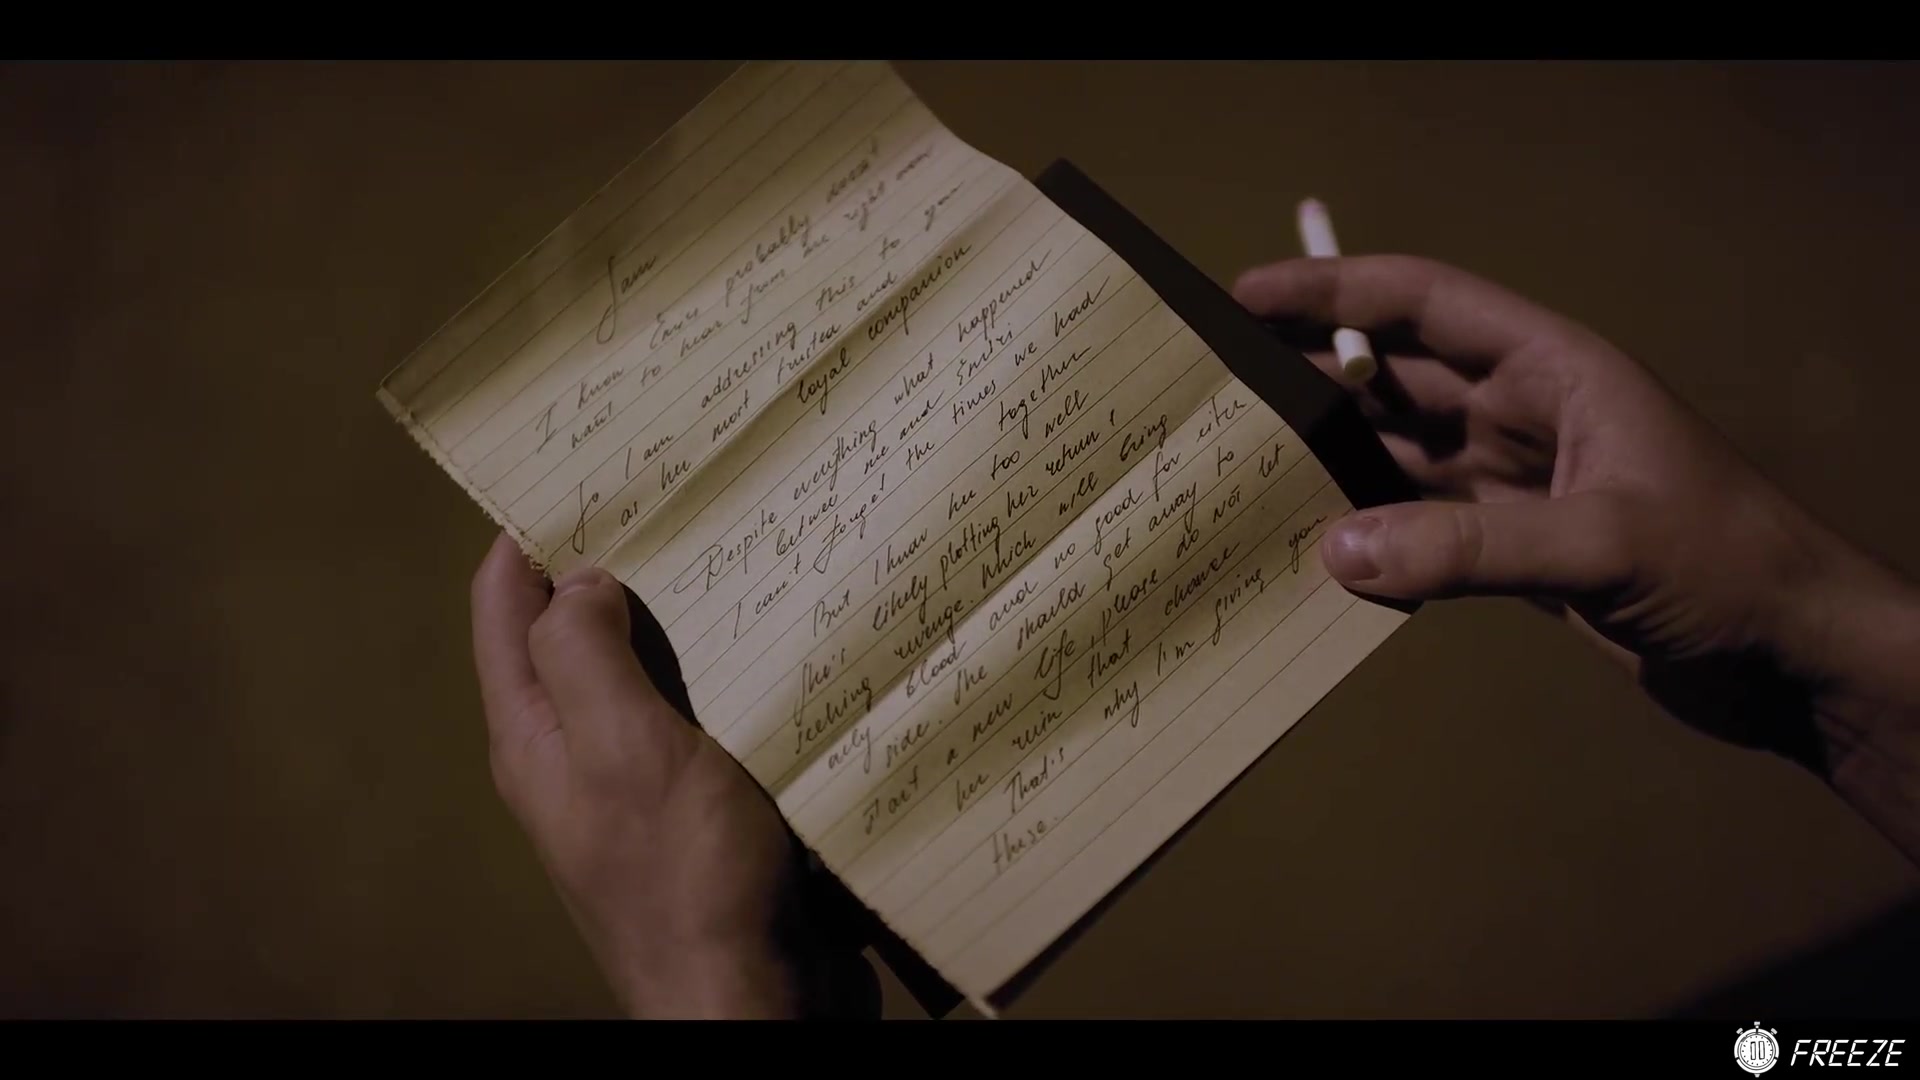 Sam
I know Emiri probably doesn't
want to hear from me right now
So I am addressing this to you
as her most trusted and
loyal companion
Despite everything what happened
between me and Emiri
I can't forget the times we had
together
But I know her too well
She's likely plotting her return,
seeking revenge. Which will bring
only blood and no good for eitch
side. She should get away to
start a new life, please do not let
her ruin that chance
That's why I'm giving you
these.
FREEZE